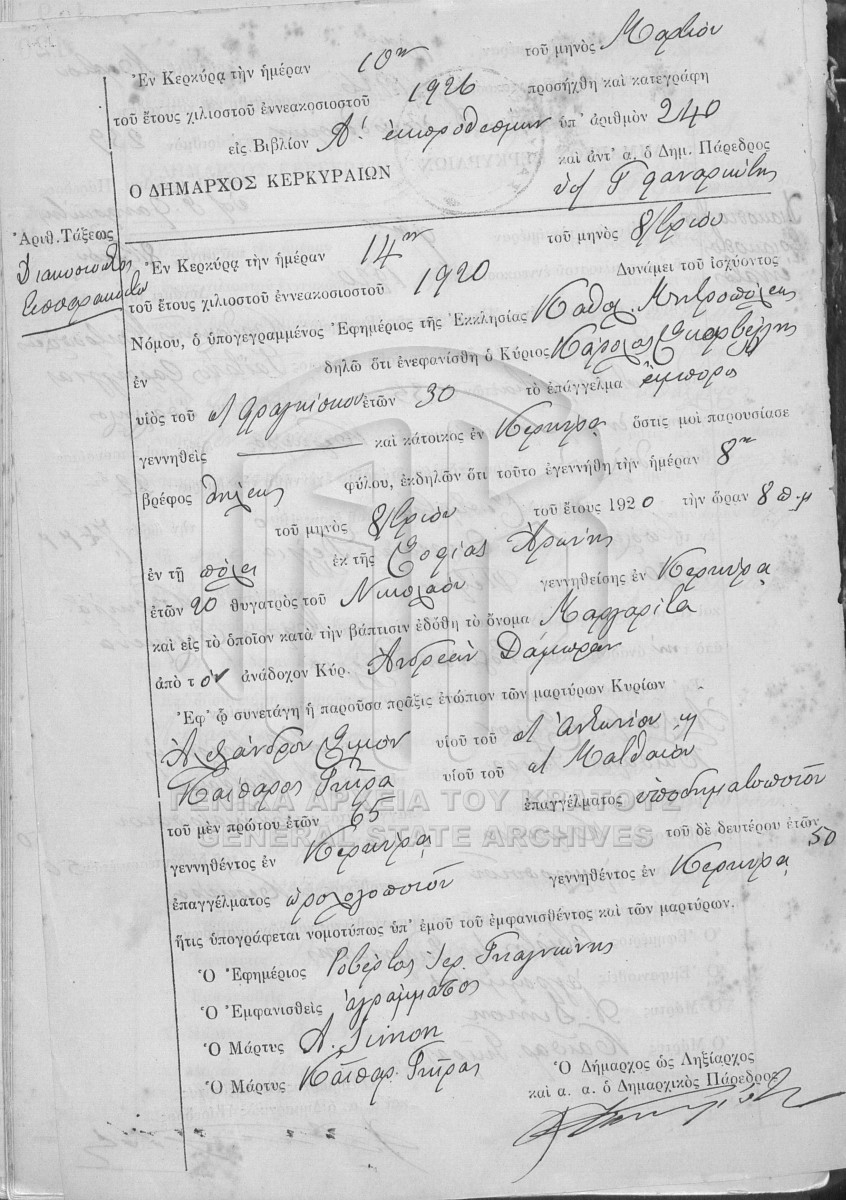 Ἐν Κερκύρᾳ τὴν ἡμέραν 10ην τοῦ μηνὸς Μαρτίου
τοῦ ἔτους χιλιοστοῦ ἐννεακοσιοστοῦ 1926 προσήχθη καὶ κατεγράφη
εἰς Βιβλίον Α! ἐκπροθέσμων ὑπ' ἀριθμὸν 240
Ο ΔΗΜΑΡΧΟΣ ΚΕΡΚΥΡΑΙΩΝ καὶ ἀντ' α. ὁ Δημ. Πάρεδρος
Ἀριθ. Τάξεως
Διακοσιοστὸς
Τεσσαρακοστὸς
Ἐν Κερκύρᾳ τὴν ἡμέραν 14ην τοῦ μηνὸς 8/βρίου
τοῦ ἔτους χιλιοστοῦ ἐννεακοσιοστοῦ 1920 Δυνάμει τοῦ ἰσχύοντος
Νόμου, ὁ ὑπογεγραμμένος Ἐφημέριος τῆς Ἐκκλησίας Καθολ. Μητροπόλεως
ἐν δηλῶ ὅτι ἐνεφανίσθη ὁ Κύριος Κάρολος
υἱὸς τοῦ Φραγκίσκου ἐτῶν 30 τὸ ἐπάγγελμα ἔμπορος
γεννηθεὶς καὶ κάτοικος ἐν Κερκύρᾳ ὅστις μοὶ παρουσίασε
βρέφος θήλεος φύλου, ἐκδηλῶν ὅτι τοῦτο ἐγεννήθη τὴν ἡμέραν 8ην
τοῦ μηνὸς 8/βρίου τοῦ ἔτους 1920 τὴν ὥραν 8 π.μ
ἐν τῇ πόλει ἐκ τῆς Σοφίας
ἐτῶν 20 θυγατρὸς τοῦ Νικολάου γεννηθείσης ἐν Κερκύρᾳ
καὶ εἰς τὸ ὁποῖον κατὰ τὴν βάπτισιν ἐδόθη τὸ ὄνομα Μαργαρίτα
ἀπὸ τὸν ἀνάδοχον Κύρ. Ἀνδρέαν
Ἐφ' ᾧ συνετάγη ἡ παροῦσα πρᾶξις ἐνώπιον τῶν μαρτύρων Κυρίων
Ἀλεξάνδρου Σιμὸν υἱοῦ τοῦ Ἀντωνίου ἢ
Καίσαρος Γκίρα υἱοῦ τοῦ Ματθαίου
ΓΕΝΙΚΑ ΑΡΧΕΙΑ ΤΟΥ ΚΡΑΤΟΥΣ
GENERAL STATE ARCHIVES
τοῦ μὲν πρώτου ἐτῶν 65 ἐπαγγέλματος ὑποδηματοποιοῦ
γεννηθέντος ἐν Κερκύρᾳ τοῦ δὲ δευτέρου ἐτῶν 50
ἐπαγγέλματος ὡρολογοποιοῦ γεννηθέντος ἐν Κερκύρᾳ
ἥτις ὑπογράφεται νομοτύπως ὑπ' ἐμοῦ τοῦ ἐμφανισθέντος καὶ τῶν μαρτύρων.
Ὁ Ἐφημέριος Ροβέρτος Ἱερ.
Ὁ Ἐμφανισθεὶς ἀγράμματος
Ὁ Μάρτυς A. Simon
Ὁ Μάρτυς Καῖσαρ Γκίρας
Ὁ Δήμαρχος ὡς Ληξίαρχος
καὶ α. α. ὁ Δημαρχικὸς Πάρεδρος